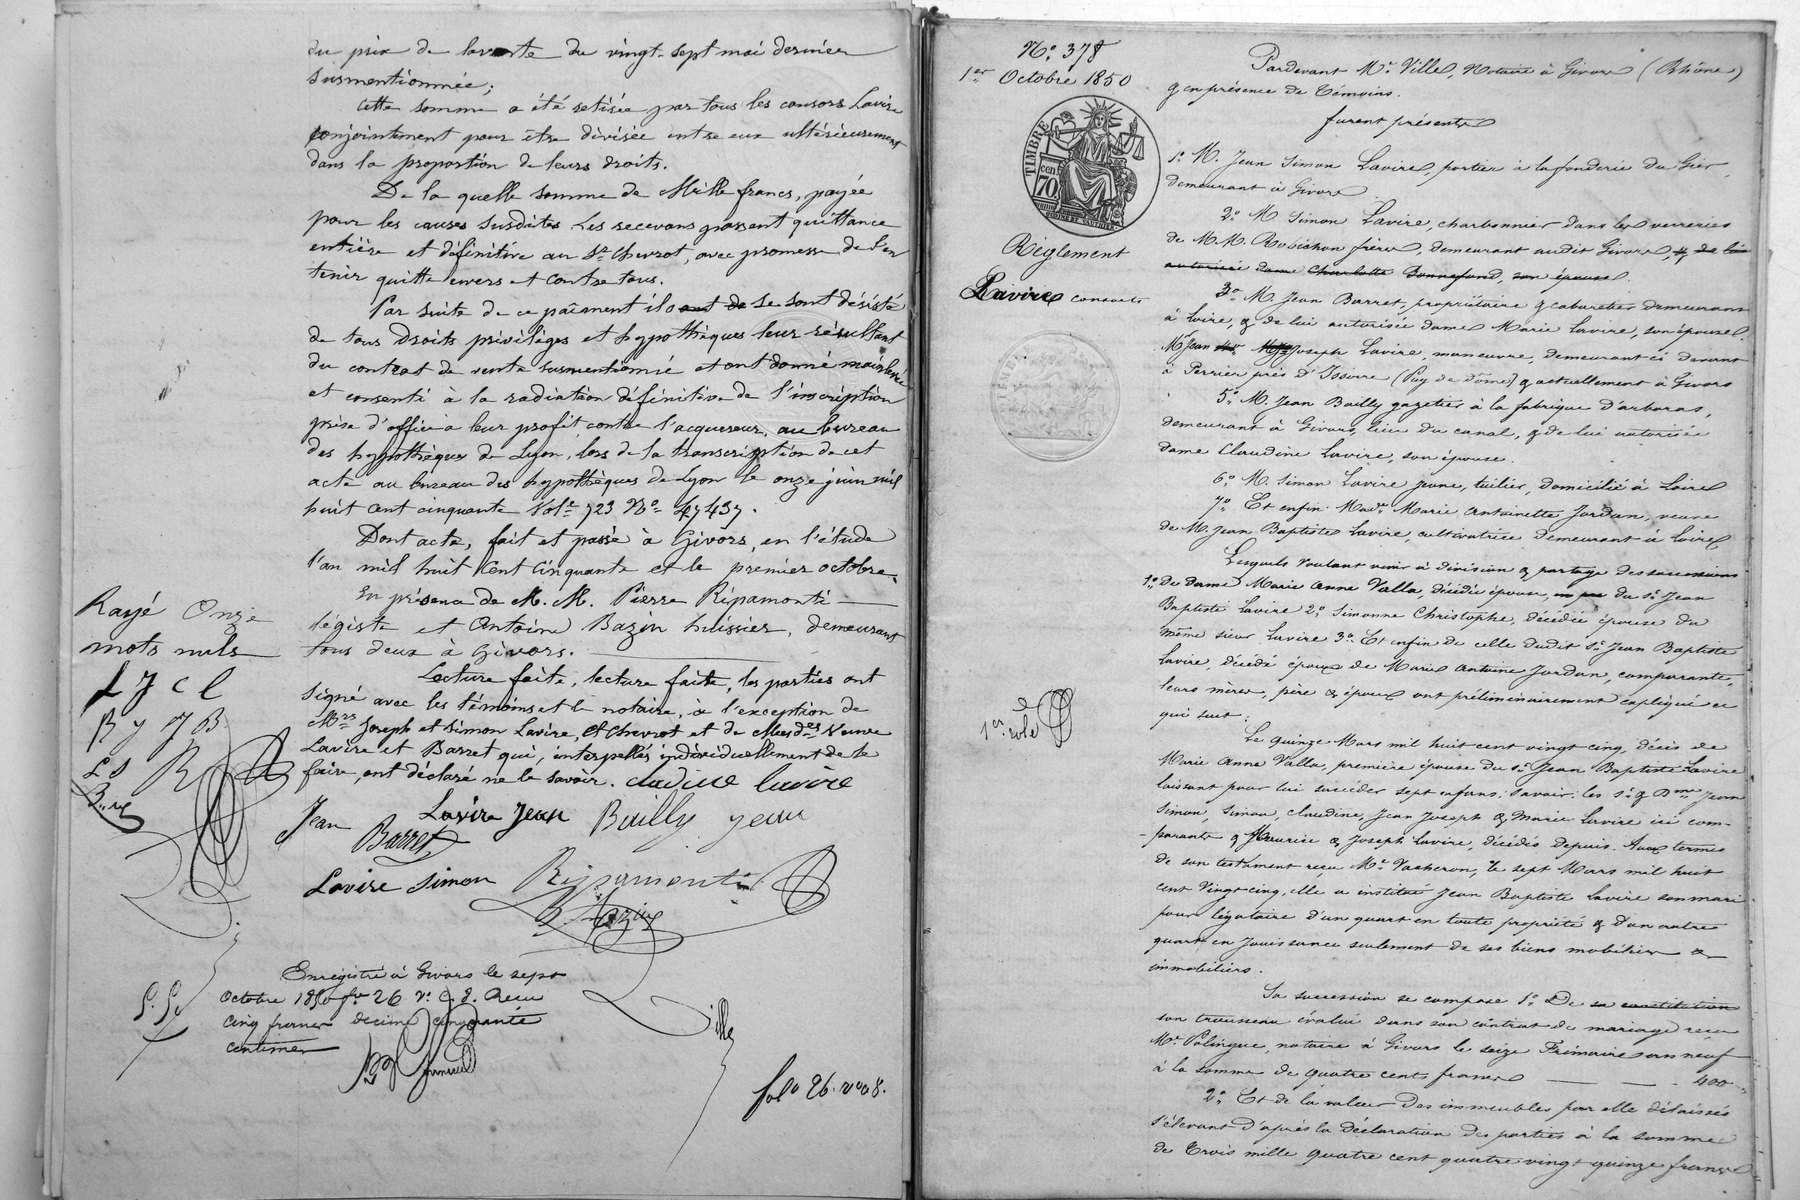 du prix de la vente du vingt-sept mai dernier
susmentionnée;
Cette somme a été retirée par tous les consors Lavire
conjointement pour être divisée entre eux ultérieurement
dans la proportion de leurs droits.
De la quelle somme de Mille francs, payée
pour les causes susdites les recevans passent quittance
entière et définitive au Sr Chevrot, avec promesse de l'en
tenir quitte envers et contre tous.
Par suite de ce paiement ils ont de se sont désisté
de tous droits privilèges et hypothèques leur résultant
du contrat de vente susmentionné et ont donné mainlevée
et consenti à la radiation définitive de l'inscription
prise d'office à leur profit contre l'acquereur, au bureau
des hypothèques de Lyon, lors de la transcription de cet
acte au bureau des hypothèques de Lyon le onze juin mil
huit cent cinquante Vole 723 No 47437.
Dont acte, fait et passé à Givors, en l'étude
l'an mil huit cent cinquante et le premier octobre,
En présence de M. M. Pierre Ripamonti
légiste et Antoine Bazin huissier, demeurant
tous deux à Givors.
Lecture faite, lecture faite, les parties ont
signé avec les témoins et le notaire, à l'exception de
Mrs Joseph et Simon Lavire, et Chevrot et de Mesdes Veuve
Lavire et Barret qui, interpellés individuellement de le
faire, ont déclaré ne le savoir. Claudine lavire
Jean Barret
Lavire Jean Bailly jean
Lavire Simon Ripamonti
Bazin
Rayé Onze
mots nuls
L J C L
B J B
L S R
Enregistré à Givors le sept
Octobre 1850 fo 26 Vo C. 8. Reçu
cinq francs décime cinquante
centimes
Ville
folo 26. vo c 8.
No. 378
1er Octobre 1850
TIMBRE
70 cen
Règlement
Lavire consorts
1er rôle
Pardevant Me Ville, Notaire à Givors (Rhône)
& en présence de Témoins.
furent présents
1o M. Jean Simon Lavire, portier à la fonderie du Gier,
demeurant à Givors
2o M Simon Lavire, charbonnier dans les verreries
de M.M. Robichon frères, demeurant audit Givors, & de lui
autorisée dame Charlotte Bonnefond, son épouse.
3o M. Jean Barret, propriétaire & cabaretier demeurant
à Loire, & de lui autorisée dame Marie Lavire, son épouse.
M Jean Joseph Lavire, manœuvre, demeurant ci devant
à Perrier près d'Issoire (Puy de Dôme) & actuellement à Givors
5o M. Jean Bailly gazetier à la fabrique d'arboras,
demeurant à Givors, lieu du canal, & de lui autorisée
Dame Claudine Lavire, son épouse.
6o M. Simon Lavire jeune, tuilier, domicilié à Loire
7o Et enfin Made Marie Antoinette Jordan, veuve
de M. Jean Baptiste Lavire, cultivatrice demeurant à Loire
Lesquels voulant venir à division & partage des successions
1o de dame Marie Anne Valla, décédée épouse, du Sr Jean
Baptiste Lavire 2o Simonne Christophe, décédée épouse du
même sieur Lavire 3o Et enfin de celle dudit Sr Jean Baptiste
Lavire, décédé époux de Marie Antoine Jordan, comparante,
leurs mères, père & époux ont préliminairement expliqué ce
qui suit:
Le quinze Mars mil huit cent vingt cinq, décès de
Marie Anne Valla, première épouse du Sr Jean Baptiste Lavire
laissant pour lui succéder sept enfans; savoir: les Srs & Dmes Jean
Simon, Simon, Claudine, Jean Joseph & Marie Lavire ici com-
-parants & Maurice & Joseph Lavire, décédés depuis. Aux termes
de son testament reçu Me Vacheron, le sept Mars mil huit
cent Vingt cinq, elle a institué Jean Baptiste Lavire son mari
pour légataire d'un quart en toute propriété & d'un autre
quart en jouissance seulement de ses biens mobiliers &
immobiliers.
Sa succession se compose 1o De sa constitution
son trousseau évalué dans son contrat de mariage reçu
Me Polingue, notaire à Givors le seize Frimaire an neuf
à la somme de quatre cents francs — — — 400
2o Et de la valeur Des immeubles par elle délaissés
s'élevant d'après la déclaration des parties à la somme
de Trois mille quatre cent quatre vingt quinze francs